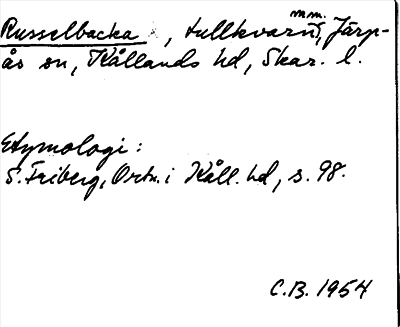 Russelbacka, tullkvarn, m.m., Järp-
ås sn, Kållands hd, Skar. l.
Etymologi:
S. Friberg, Ortn. i Kåll. hd, s. 98.
C.B. 1954